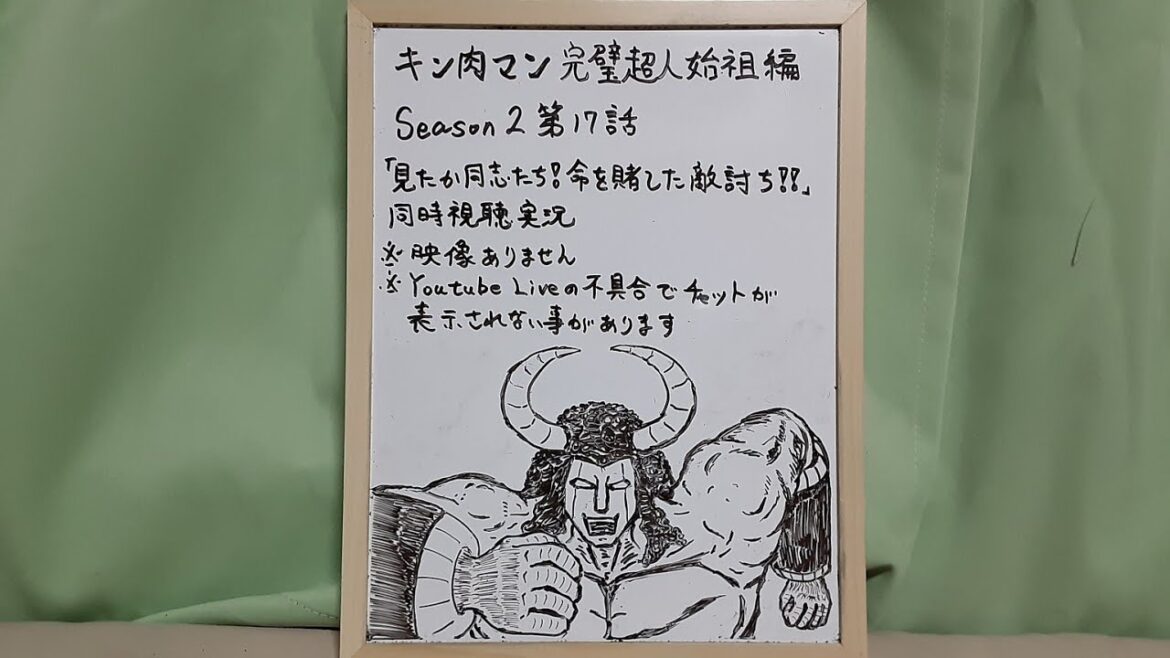 キン肉マン 完璧超人始祖編
Season 2 第17話
「見たか同志たち!命を賭した敵討ち!!」
同時視聴実況
※映像ありません
※Youtube Liveの不具合でチャットが
表示されない事があります